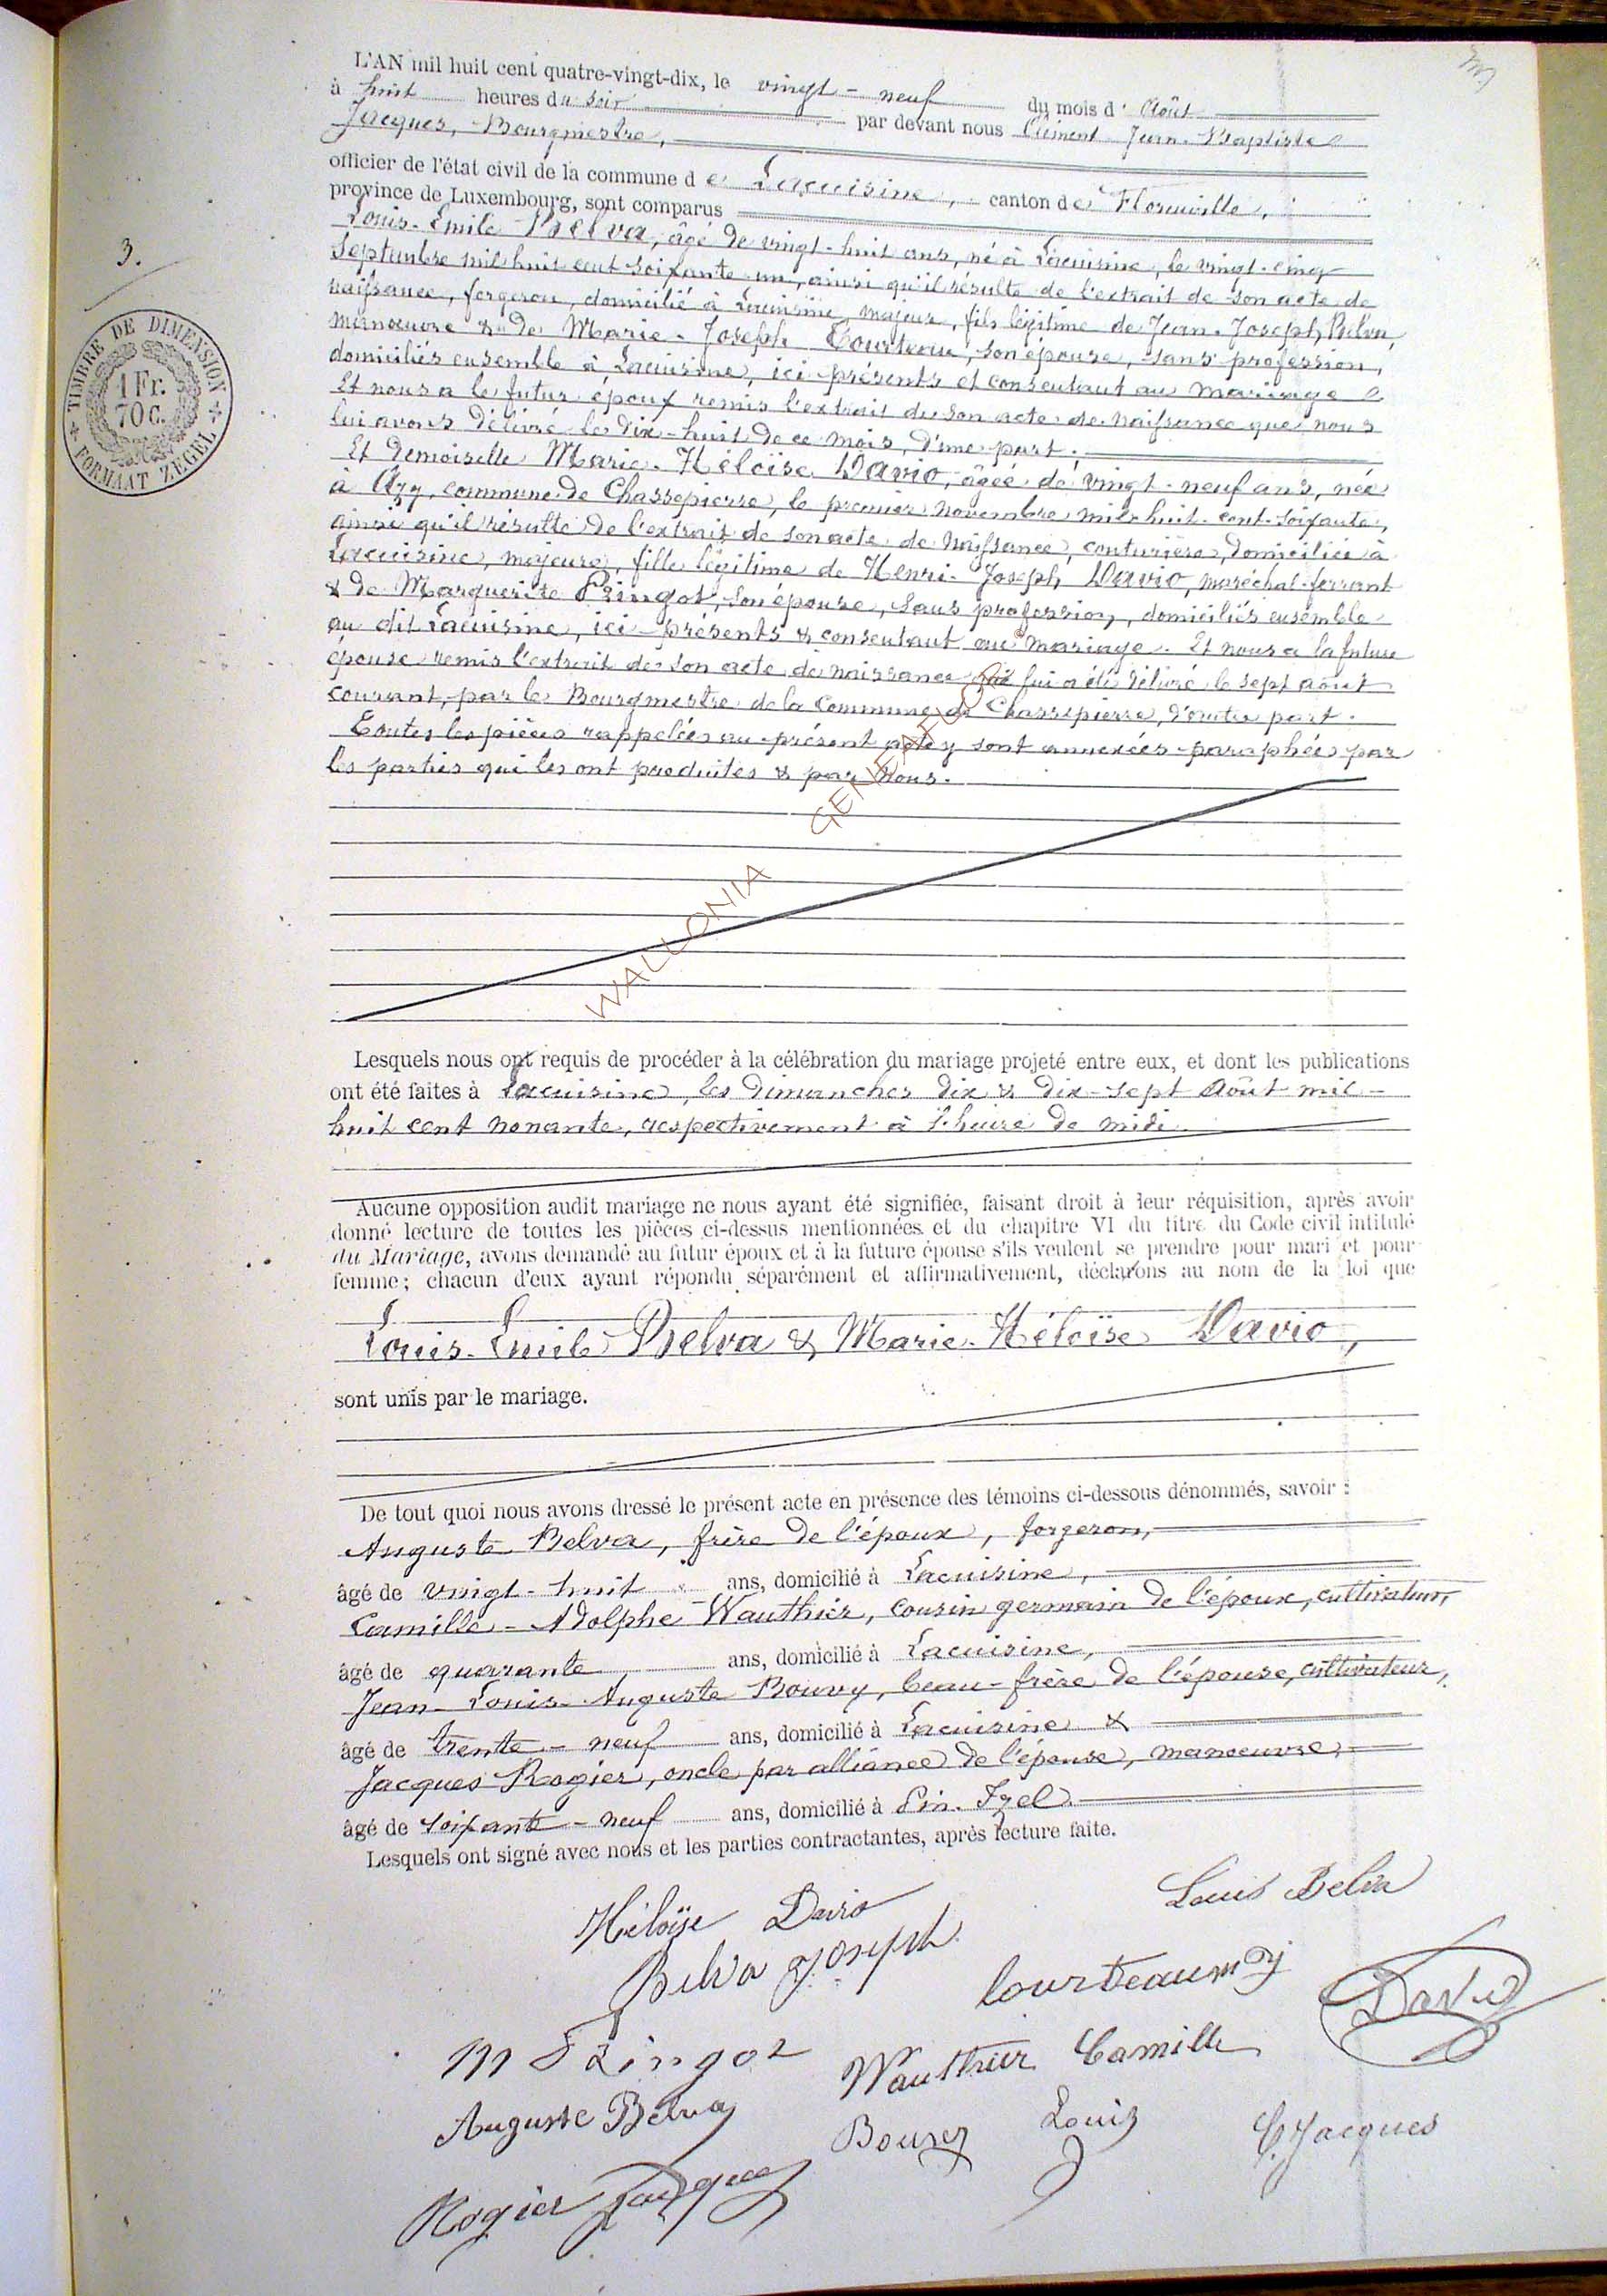 L'AN mil huit cent quatre-vingt-dix, le vingt-neuf du mois d'Août
à huit heures du soir par devant nous Clément Jean-Baptiste
Jacques, Bourgmestre,
officier de l'état civil de la commune de Lacuisine, canton de Florenville,
province de Luxembourg, sont comparus
Louis-Emile Belva, âgé de vingt-huit ans, né à Lacuisine, le vingt-cinq
Septembre mil huit cent soixante-un, ainsi qu'il résulte de l'extrait de son acte de
naissance, forgeron, domicilié à Lacuisine, majeur, fils légitime de Jean-Joseph Belva,
manœuvre & de Marie-Joseph Courteaux, son épouse, sans profession,
domiciliés ensemble à Lacuisine, ici présents et consentant au mariage.
Et nous a le futur époux remis l'extrait de son acte de naissance que nous
lui avons délivré le dix-huit de ce mois, d'une part.
Et demoiselle Marie-Héloïse Davio, âgée de vingt-neuf ans, née
à Azy, commune de Chassepierre, le premier novembre mil-huit-cent-soixante,
ainsi qu'il résulte de l'extrait de son acte de naissance, couturière, domiciliée à
Lacuisine, majeure, fille légitime de Henri-Joseph Davio, maréchal-ferrant
& de Marguerite Pringot, son épouse, sans profession, domiciliés ensemble
au dit Lacuisine, ici présents & consentant au mariage. Et nous a la future
épouse remis l'extrait de son acte de naissance qui lui a été délivré le sept août
courant, par le Bourgmestre de la Commune de Chassepierre, d'autre part.
Toutes les pièces rappelées au présent acte y sont annexées paraphées par
les parties qui les ont produites & par nous.
WALLONIA GENEAFGO
Lesquels nous ont requis de procéder à la célébration du mariage projeté entre eux, et dont les publications
ont été faites à Lacuisine, les dimanches dix & dix-sept Août mil-
huit cent nonante, respectivement à l'heure de midi.
Aucune opposition audit mariage ne nous ayant été signifiée, faisant droit à leur réquisition, après avoir
donné lecture de toutes les pièces ci-dessus mentionnées et du chapitre VI du titre du Code civil intitulé
du Mariage, avons demandé au futur époux et à la future épouse s'ils veulent se prendre pour mari et pour
femme; chacun d'eux ayant répondu séparément et affirmativement, déclarons au nom de la loi que
Louis-Emile Belva & Marie-Héloïse Davio,
sont unis par le mariage.
De tout quoi nous avons dressé le présent acte en présence des témoins ci-dessous dénommés, savoir :
Auguste Belva, frère de l'époux, forgeron,
âgé de vingt-huit ans, domicilié à Lacuisine,
Camille-Adolphe Wauthier, cousin germain de l'époux, cultivateur,
âgé de quarante ans, domicilié à Lacuisine,
Jean-Louis-Auguste Bouvy, beau-frère de l'épouse, cultivateur,
âgé de trente-neuf ans, domicilié à Lacuisine &
Jacques Rogier, oncle par alliance de l'épouse, manœuvre,
âgé de soixante-neuf ans, domicilié à Pin-Izel.
Lesquels ont signé avec nous et les parties contractantes, après lecture faite.
Louis Belva
Héloïse Davio
Belva Joseph
Courteaux Mj
Davio
M Pringot
Wauthier Camille
Auguste Belva
Bouvy Louis
C. Jacques
Rogier Jacques
3.
TIMBRE DE DIMENSION
1 Fr.
70 C.
FORMAAT ZEGEL